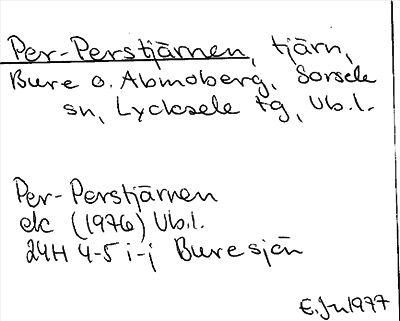 Per-Perstjärnen, tjärn,
Bure o. Abmoberg, Sorsele
sn, Lycksele tg, Vb.l.
Per-Perstjärnen
ek (1976) Vb.l.
24H 4-5 i-j Buresjön
E.Jn 1977